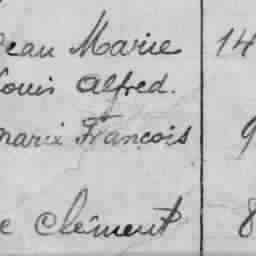 Jean Marie 14
Louis Alfred.
Marie François 9
Clément 8